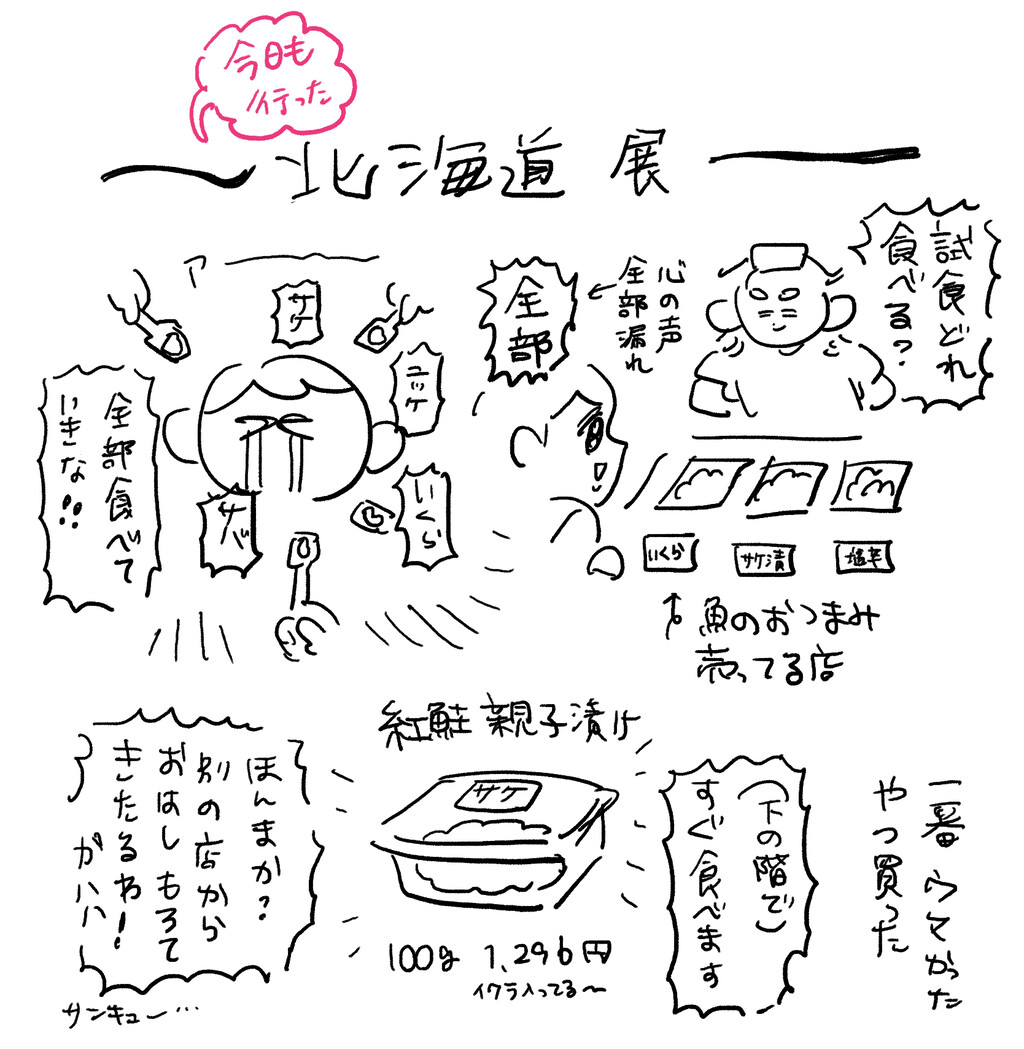 今日も
行った
北海道 展
試食どれ
食べる?
心の声
全部漏れ
全部
いくら
サケ漬
塩辛
魚のおつまみ
売ってる店
ア
サケ
ニッケ
いくら
サバ
全部食べて
いきな!!
一番 ウマかった
やつ買った
(下の階で)
すぐ食べます
紅鮭 親子漬け
サケ
100g 1,296円
イクラ入ってる〜
ほんまか?
別の店から
おはしもろて
きたるわ!
ガハハ
サンキュー…